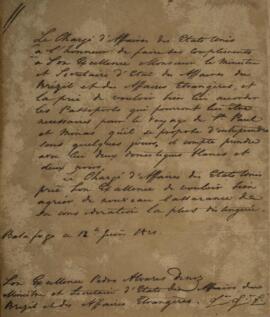 Le Chargé d'Affaires des Etats Unis
à l'honneur de faire ses complimens
à Son Excellence Monsieur le Ministre
et Secretaire d'Etat des Affaires du
Brézil et des Affaires Etrangères et
le prie de vouloir bien lui accorder
les Passeports qui pourront lui être
necessaires pour le voyage de St. Paul
et Minas qu'il se propose d'entreprendre
sous quelques jours, il compte prendre
avec lui deux domestiques blancs et
deux noirs.
Le Chargé d'Affaires des Etats Unis
prie Son Excellence de vouloir bien
agréer de nouveau l'assurance de
sa consideration la plus distinguée.
Botafogo ce 12 Juin
Son Excellence Pedro Alvares Diniz
Ministre et Secretaire d'Etat des Affaires du
Brézil et des Affaires Etrangères.